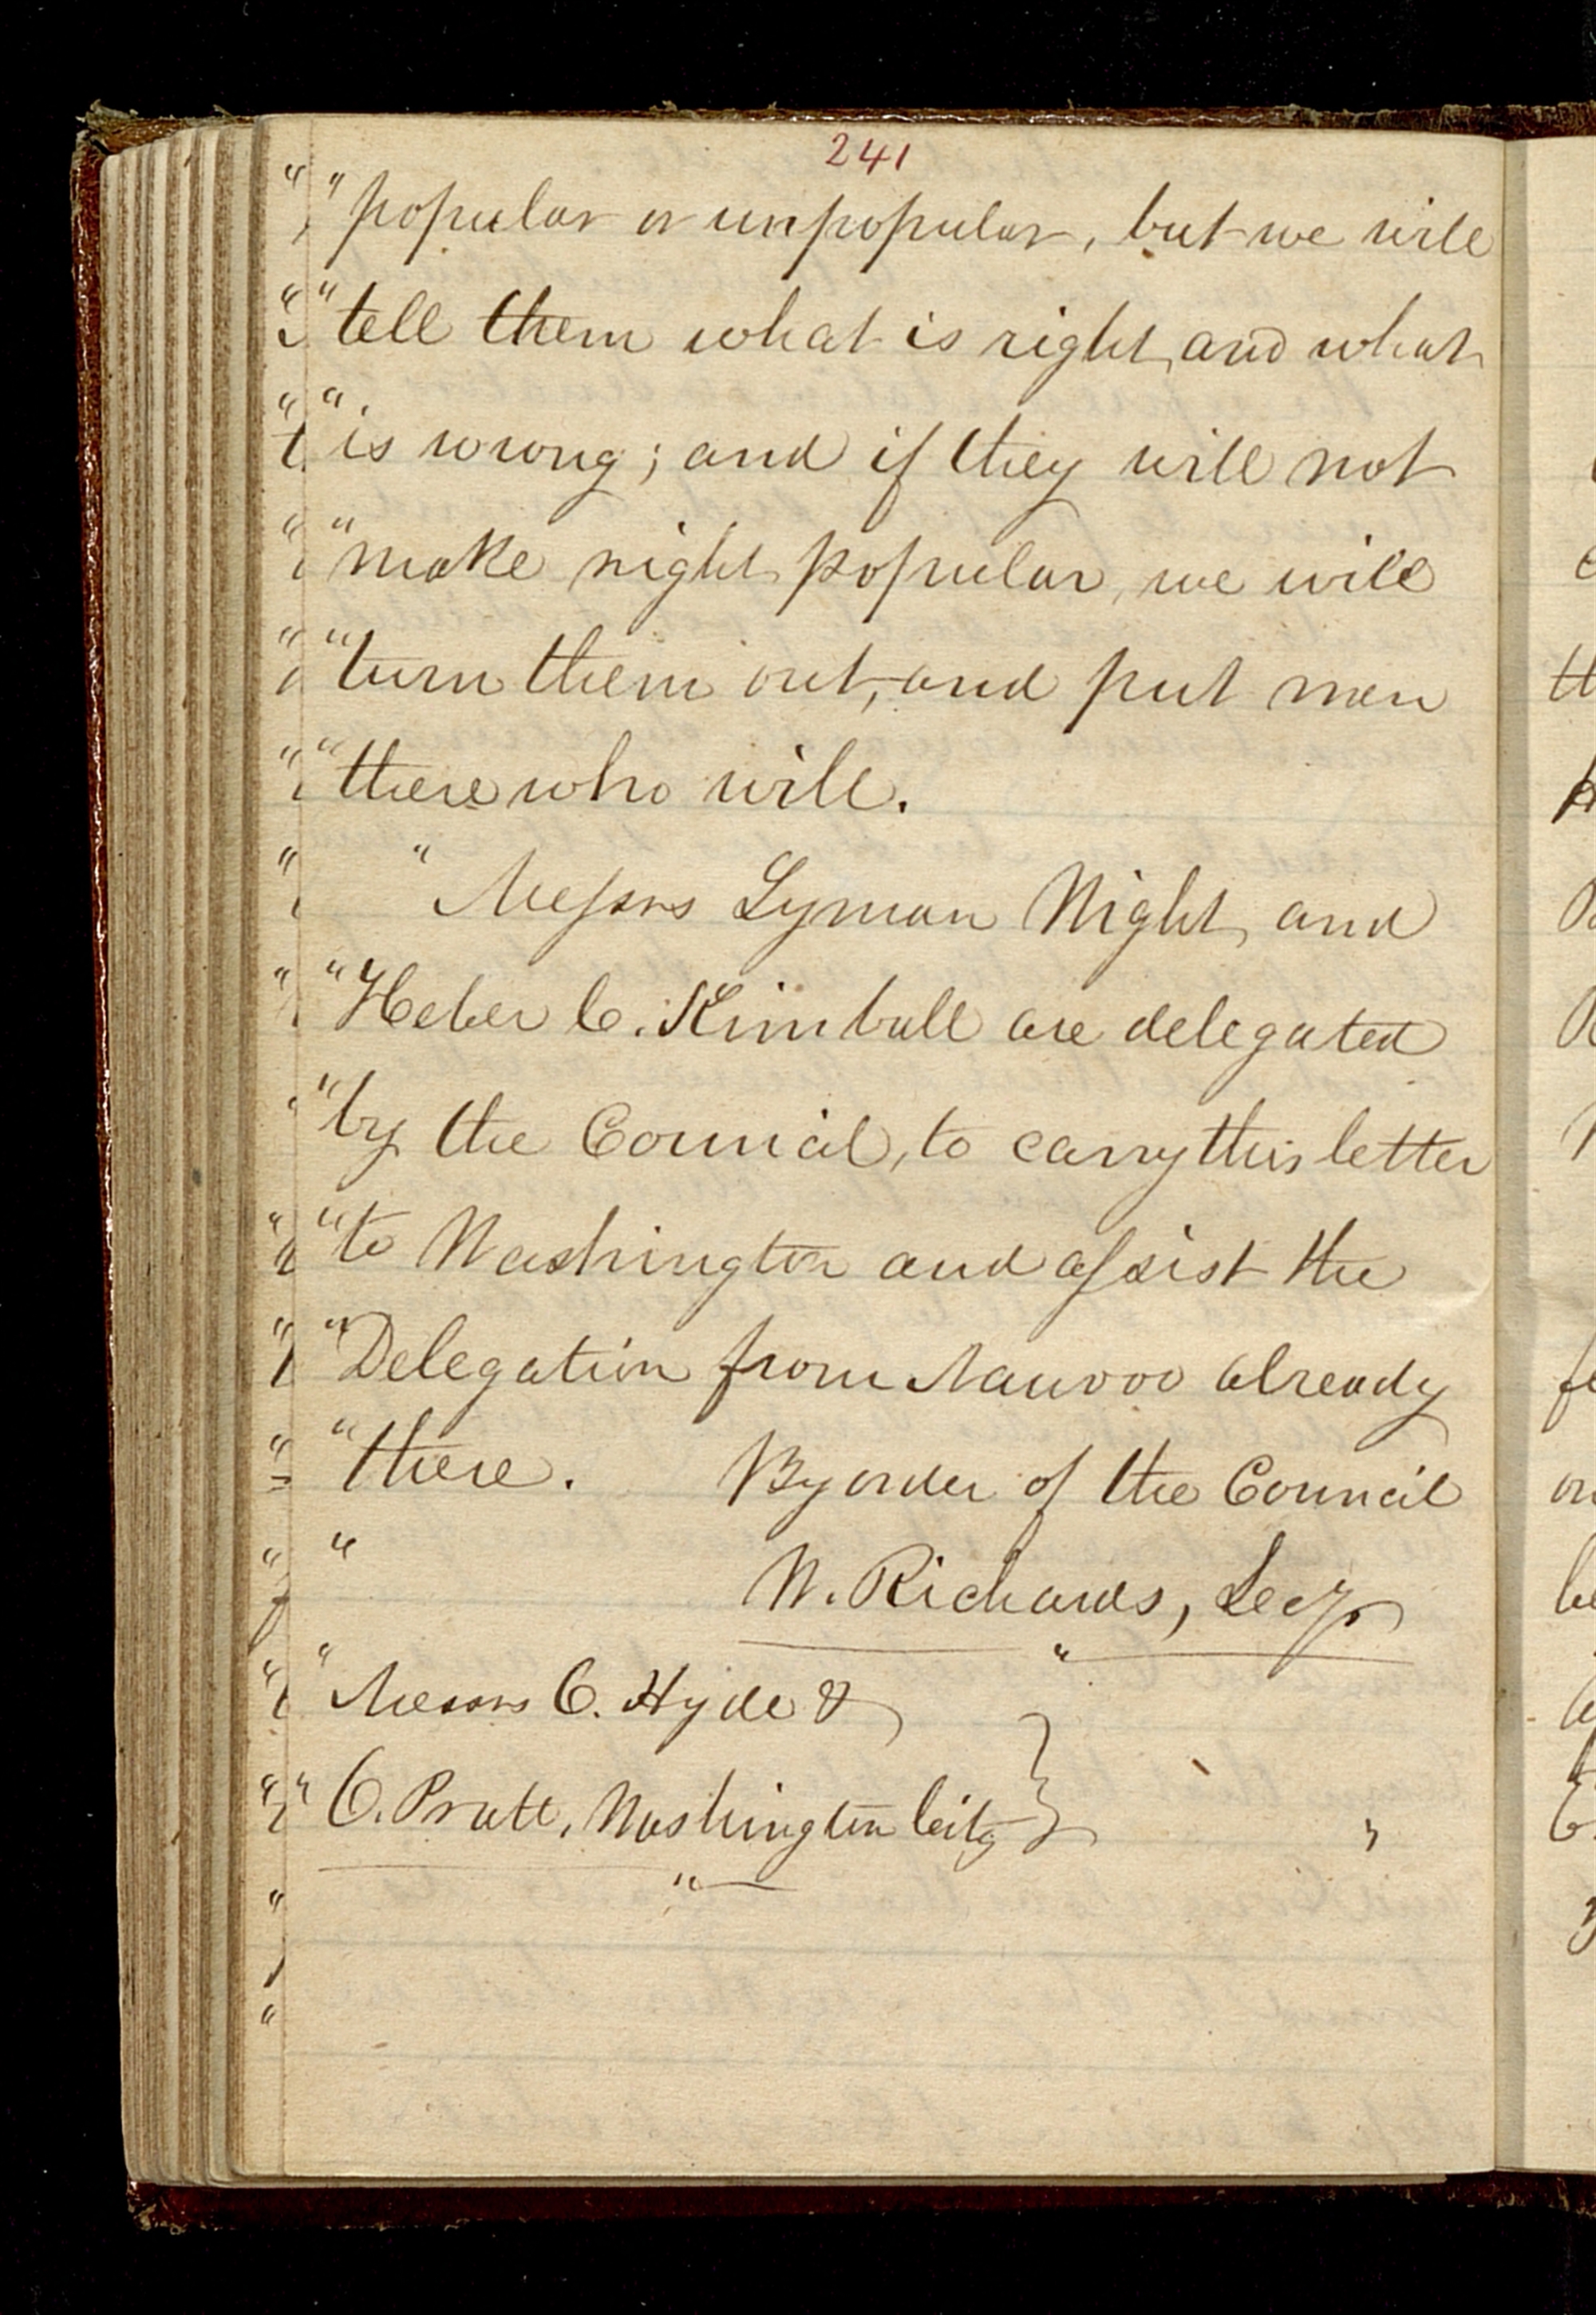 241
"popular or unpopular, but we will
"tell them what is right, and what
"is wrong; and if they will not
"make right popular, we will
"turn them out, and put men
"there who will.
"Messrs Lyman Wight, and
"Heber C. Kimball are delegated
"by the Council, to carry this letter
"to Washington and assist the
"Delegation from Nauvoo already
"there. By order of the Council
" W. Richards, Secy.
"Messrs O. Hyde &
" O. Pratt, Washington City
"